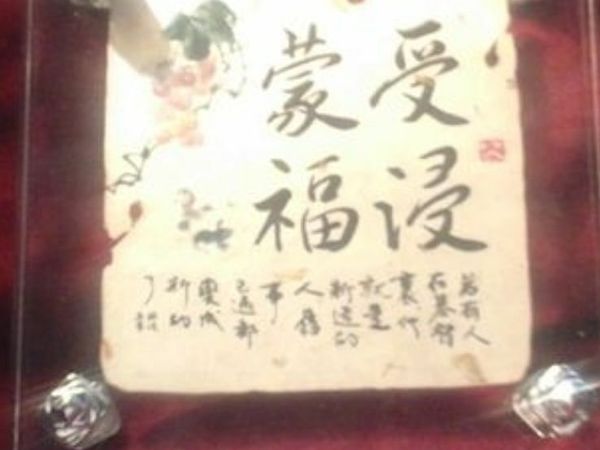 受浸
蒙福
若有人
在基督
裏他
就是
新造的
人舊
事
已過都
變成
新的
了